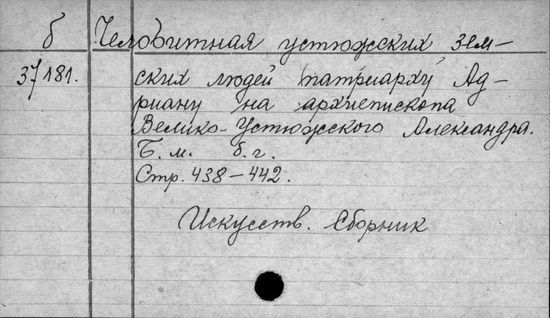 б Челобитная устюжских зем-
37181. ских людей патриарху Ад-
риану на архиепископа
Велико-Устюжского Александра.
Б. м. б. г.
Стр. 438-442.
Искусств. Сборник